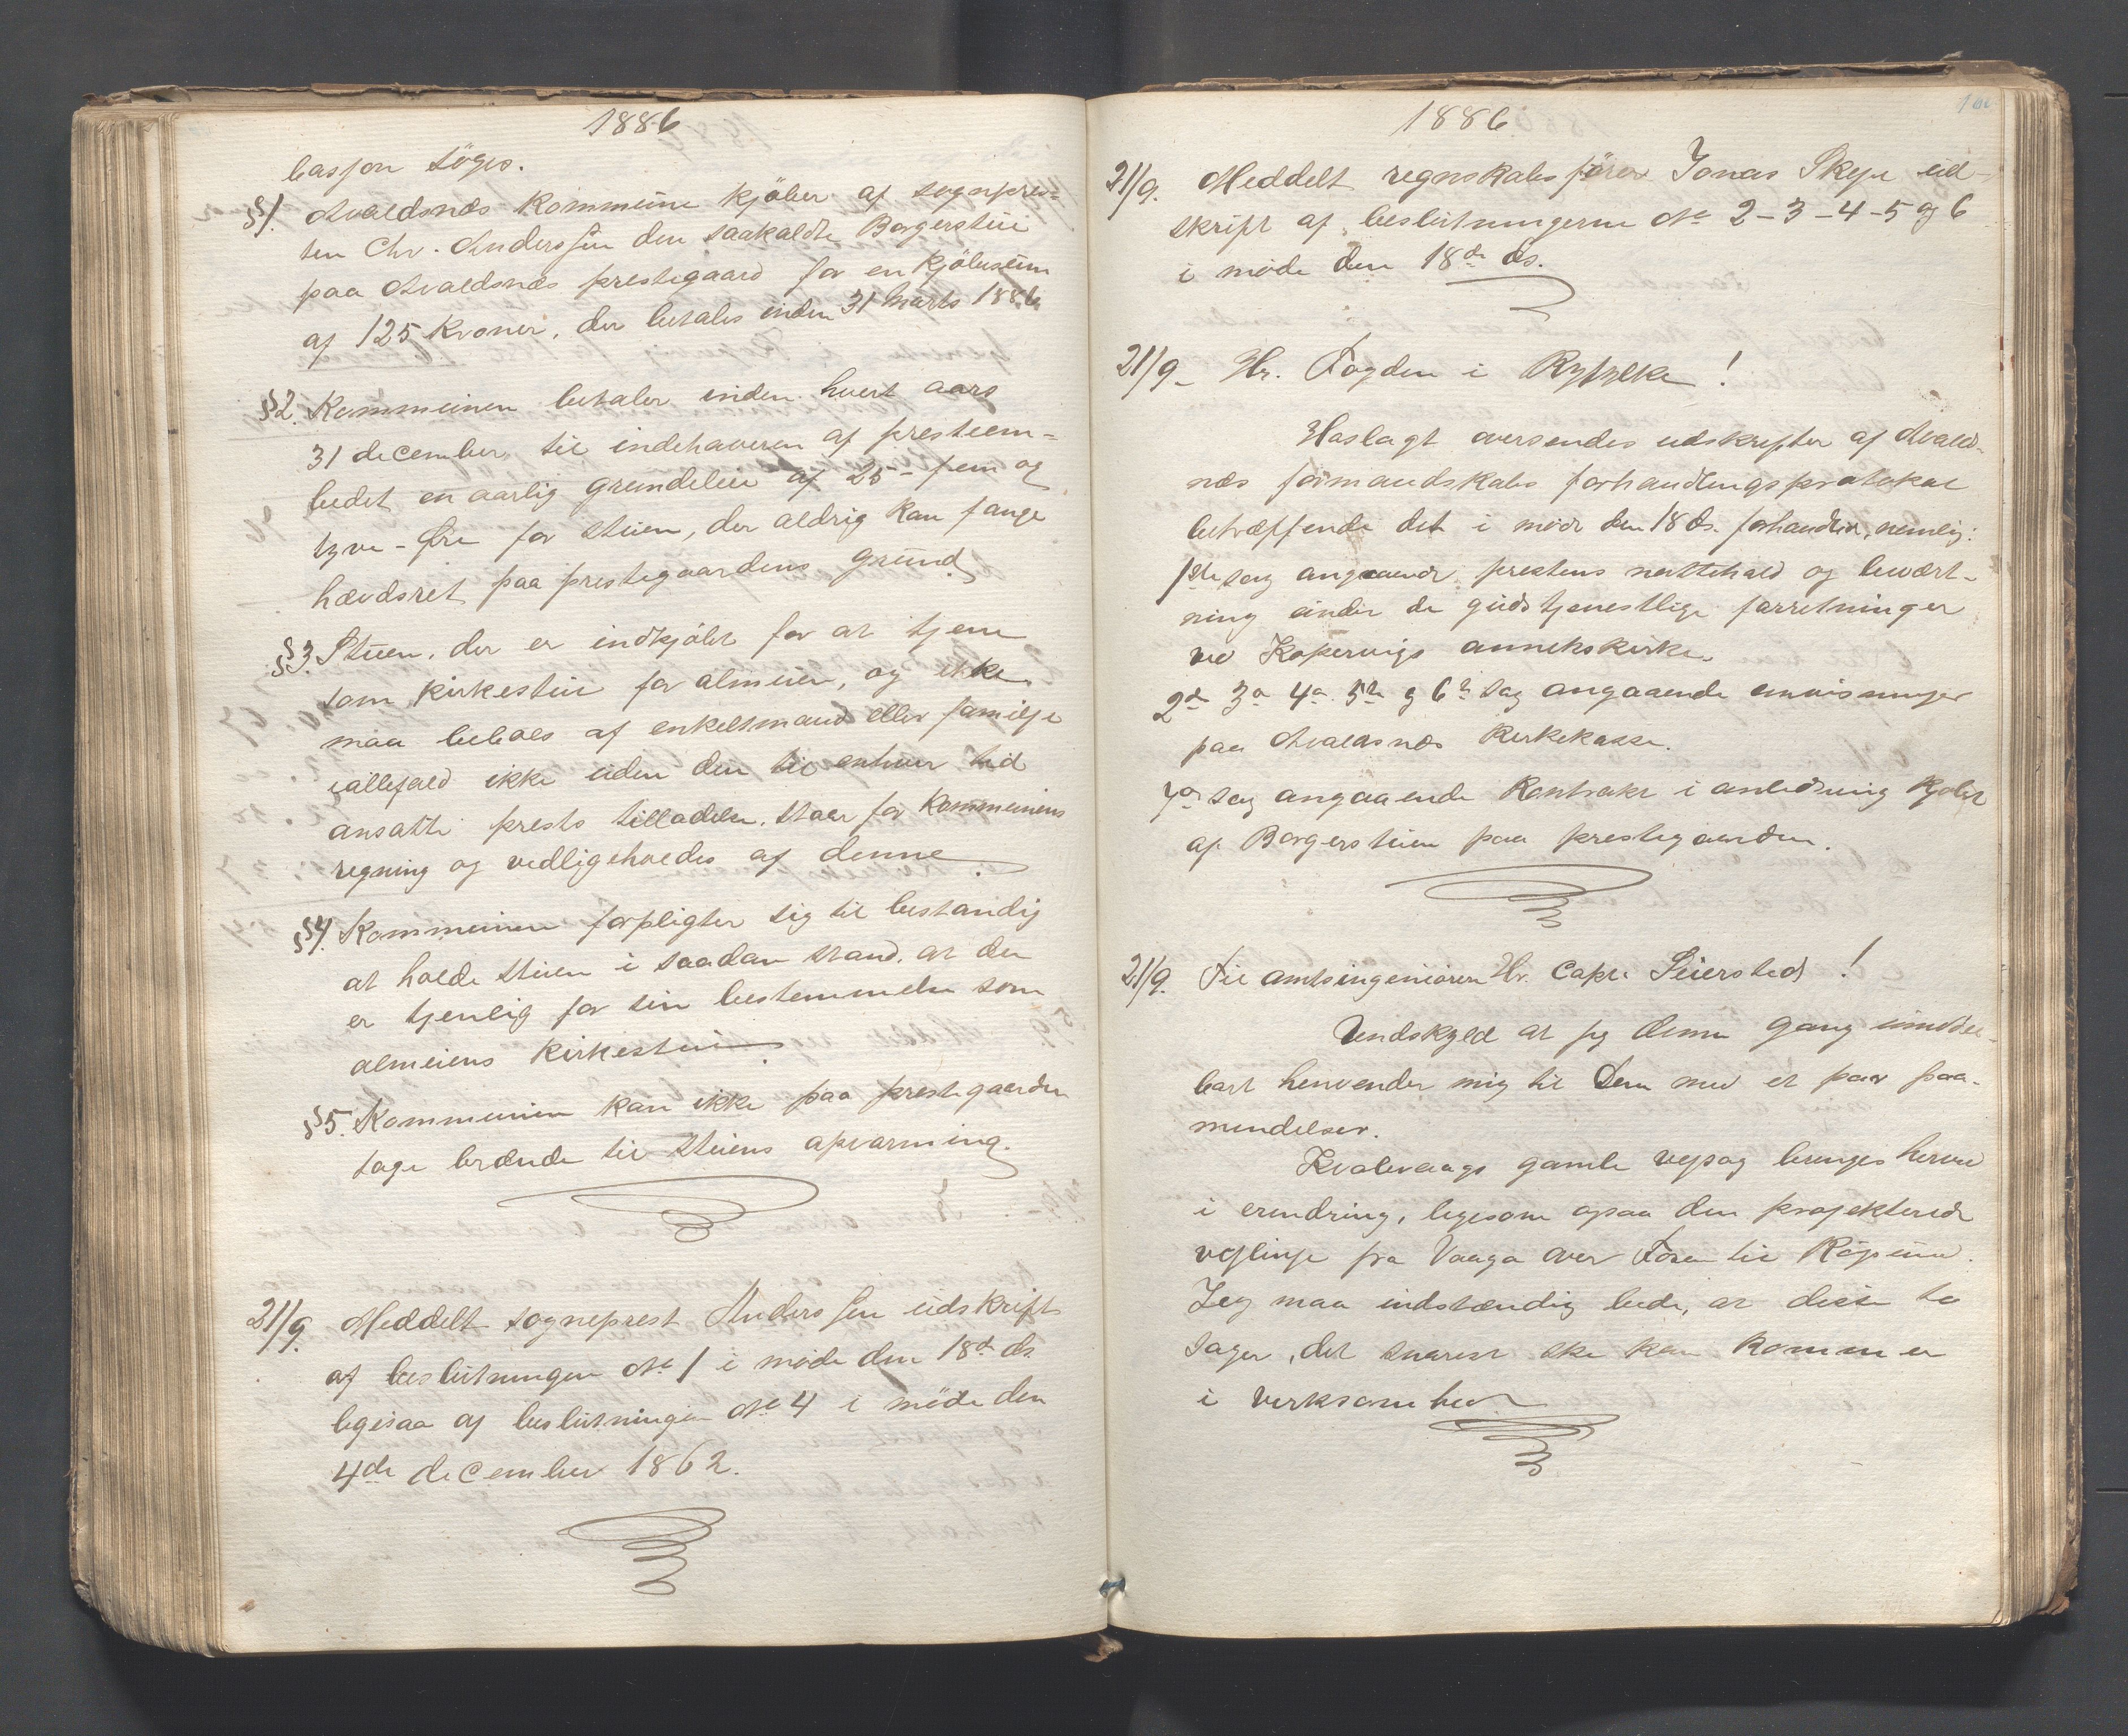 1886
basjon söges.
§1. Avaldsnæs Kommune kjöber af sognepres-
ten Chr. Anderssen den saakaldte Borgerstue
paa Avaldsnæs prestegaard for en kjöbesum
af 125 Kroner, der betales inden 31 Marts 1886
§2. Kommunen betaler inden hvert aars
31 december til indehaveren af presteem-
bedet en aarlig grundleie af 25 - fem og
tyve - Øre for stuen, der aldrig kan fange
hævdsret paa prestegaardens grund.
§3. Stuen, der er indkjöbt for at tjene
som kirkestue for almuen, og ikke
maa beboes af enkeltmand eller familje
ialfald ikke uden den til enhver tid
ansatte prests tilladelse. staar for Kommunens
regning og vedligeholdes af denne.
§4. Kommunen forpligter sig til bestandig
at holde stuen i saadan stand, at den
er tjenlig for sin bestemmelse som
almuens Kirkestue.
§5. Kommunen kan ikke paa prestegaarden
tage brænde til stuens opvarming.
21/9. Meddelt sogneprest Anderssen udskrift
af beslutningen No 1 i møde den 18de ds.
ligesaa af beslutningen No 4 i møde den
4de december 1862.
1886
21/9. Meddelt regnskabsfører Jonas Skeje ud-
skrift af beslutningerne No 2-3-4-5 og 6
i møde den 18de ds.
21/9- Hr. Fogden i Ryfylke!
Hoslagt oversendes udskrifter af Avalds-
næs formandskabs forhandlingsprotokol
betræffende det i møde den 18 ds. forhandlede, nemlig:
1ste sag angaaende prestens nattehold og bevært-
ning under de gudstjenestlige forretninger
ved Kopervigs annekskirke.
2de 3de 4de 5te og 6te sag angaaende anvisninger
paa Avaldsnæs Kirkekasse.
7de sag angaaende Kontrakt i anledning Kjöbet
af Borgerstuen paa prestegaarden.
21/9. Til amtsingeniøren Hr. Capt. Seiersted!
Undskyld at jeg denne gang umiddel-
bart henvender mig til Dem med et par paa-
mindelser.
Kvalevaags gamle vejsag bringes herved
i erindring, ligesom ogsaa den projekterede
vejlinje fra Vaaga over Fosen til Røksund.
Jeg maa indstændig bede, at disse to
sager, det snarest ske kan kommer
i virksomhed